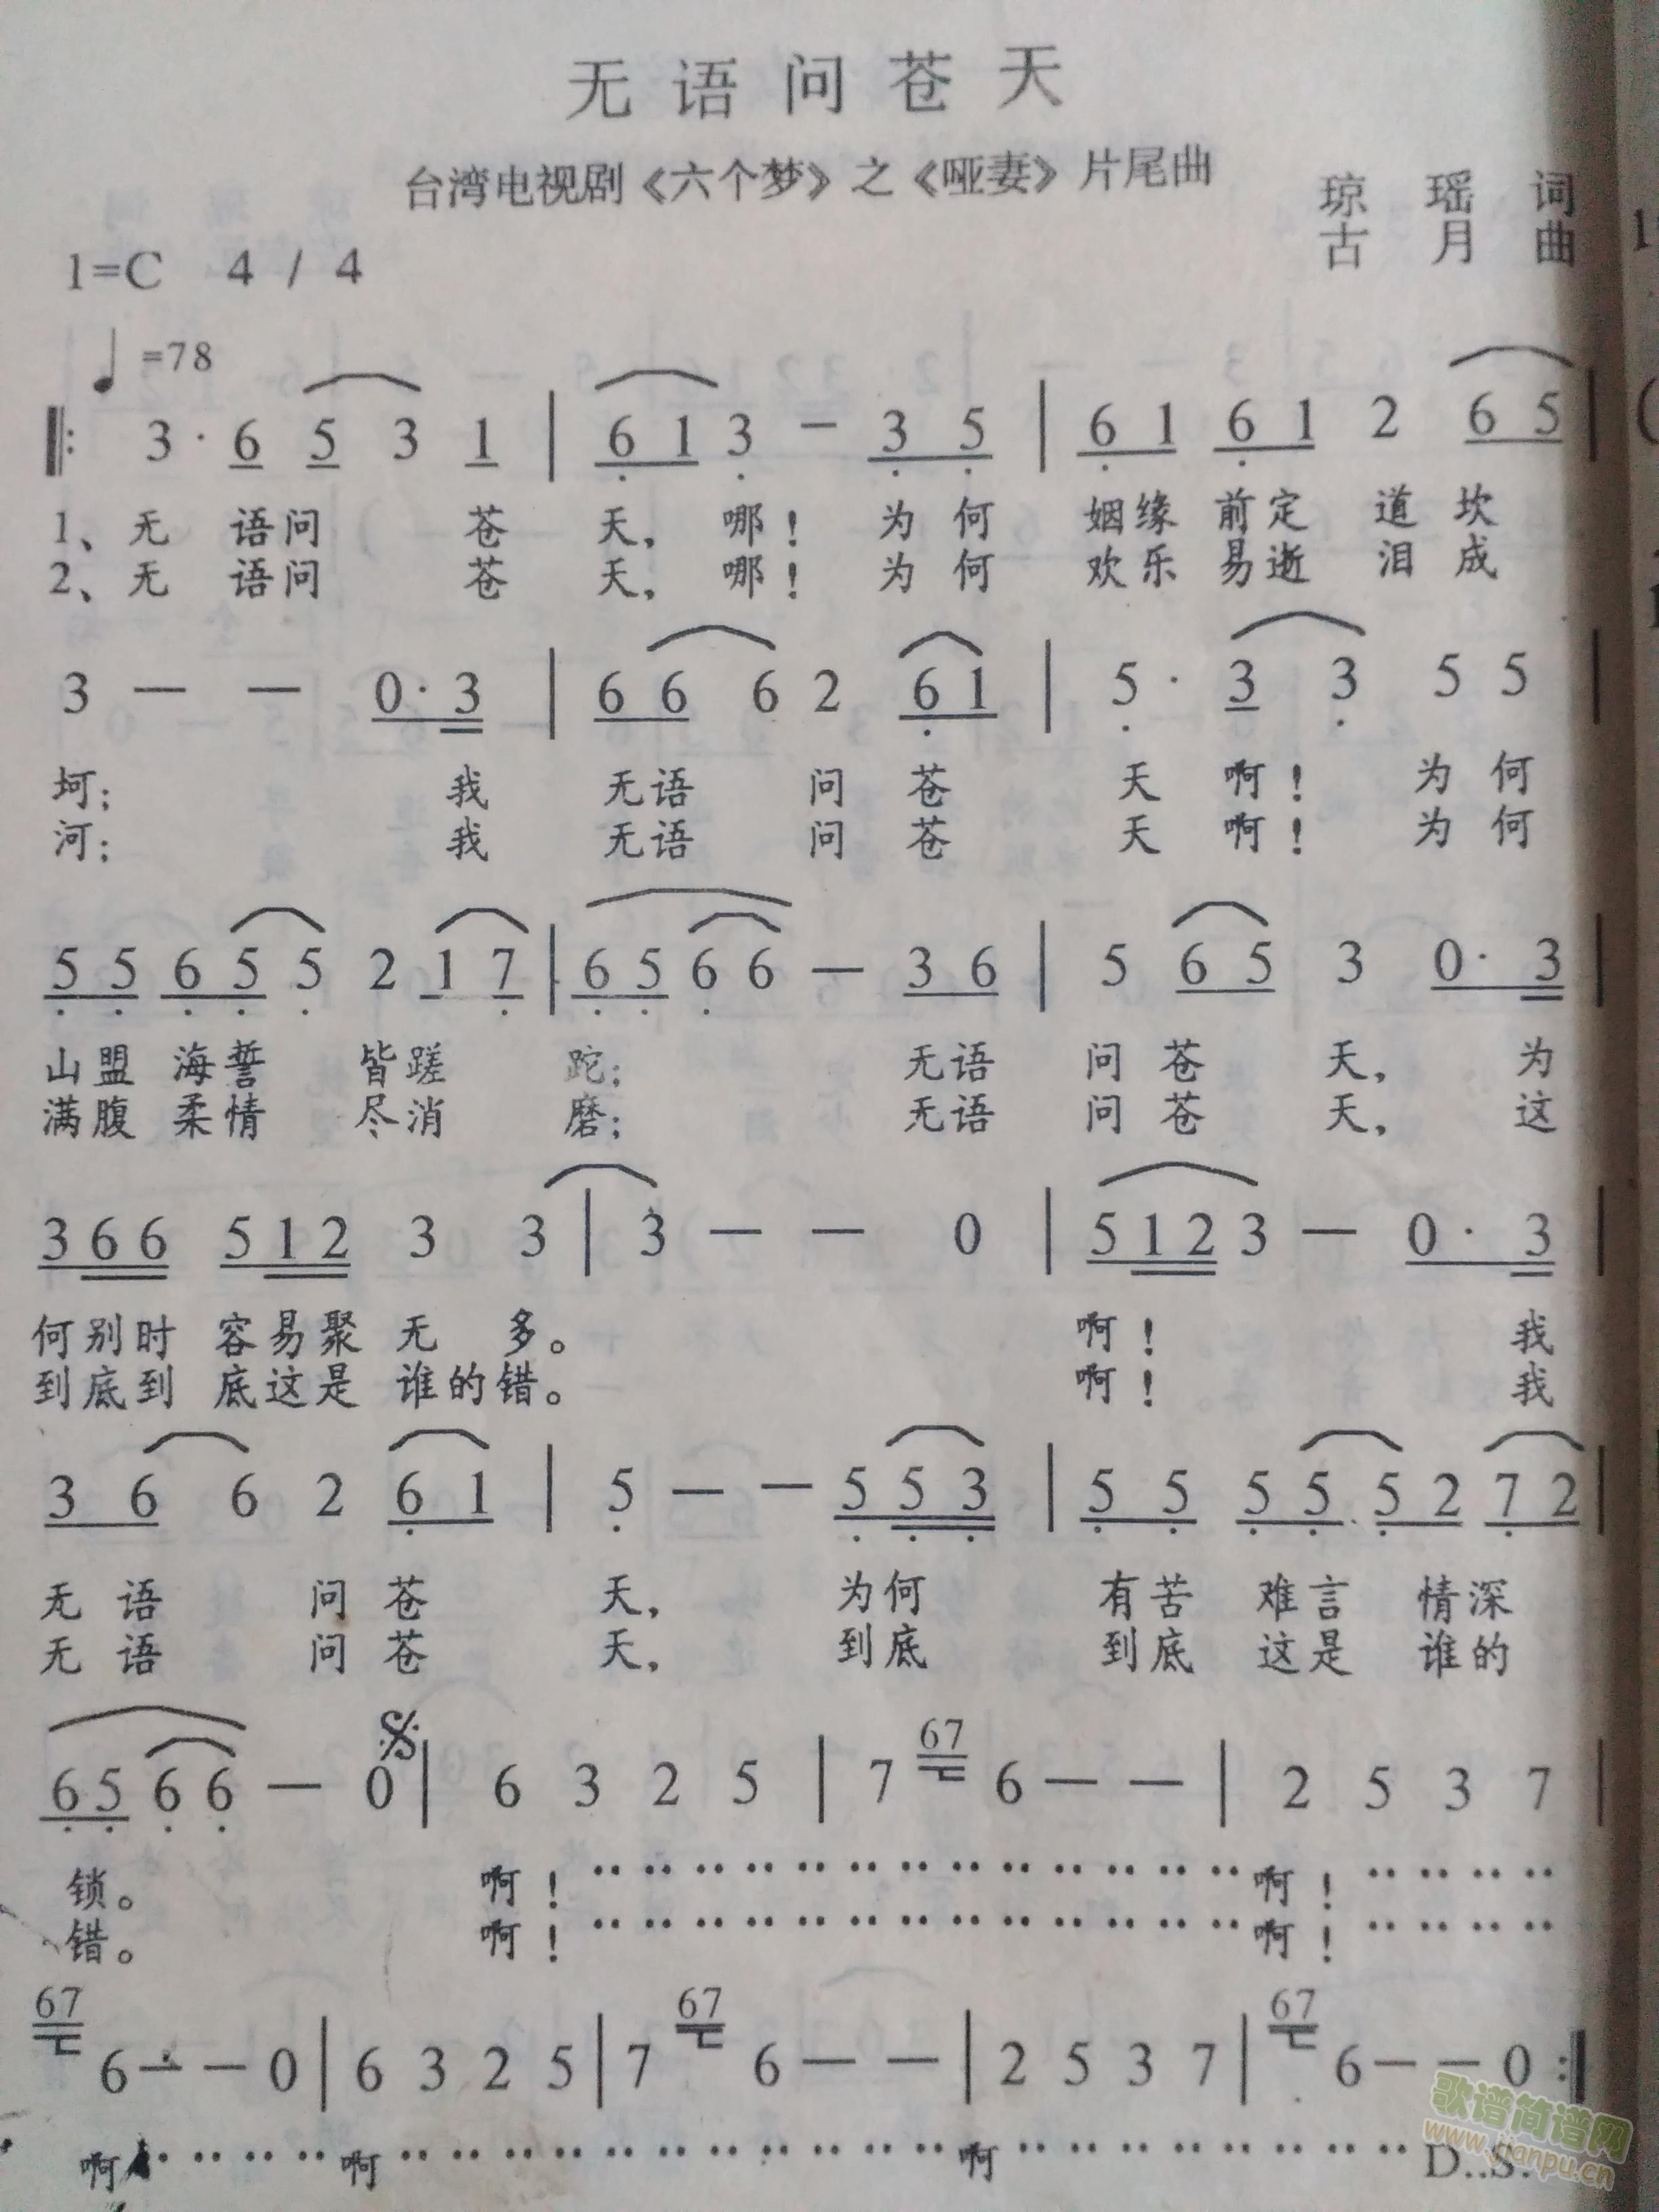 无语问苍天
台湾电视剧《六个梦》之《哑妻》片尾曲
琼 瑶 词
古 月 曲
1=C 4 / 4
♩=78
‖: 3 · 6 5 3 1 | 6 1 3 — 3 5 | 6 1 6 1 2 6 5 |
1、无 语问 苍 天，哪！ 为 何 姻缘 前定 道 坎
2、无 语问 苍 天，哪！ 为 何 欢乐 易逝 泪 成
3 — — 0 · 3 | 6 6 6 2 6 1 | 5 · 3 3 5 5 |
坷； 我 无语 问 苍 天 啊！ 为 何
河； 我 无语 问 苍 天 啊！ 为 何
5 5 6 5 5 2 1 7 | 6 5 6 6 — 3 6 | 5 6 5 3 0 · 3 |
山盟 海誓 皆蹉 跎； 无语 问 苍 天， 为
满腹 柔情 尽消 磨； 无语 问 苍 天， 这
3 6 6 5 1 2 3 3 | 3 — — 0 | 5 1 2 3 — 0 · 3 |
何别时 容易聚 无 多。 啊！ 我
到底到 底这是 谁的错。 啊！ 我
3 6 6 2 6 1 | 5 — — 5 5 3 | 5 5 5 5 5 2 7 2 |
无 语 问 苍 天， 为何 有苦 难言 情深
无 语 问 苍 天， 到底 到底 这是 谁的
6 5 6 6 — 0 | 6 3 2 5 | 7 67 6 — — | 2 5 3 7 |
锁。 啊！ ·························· 啊！ ········
错。 啊！ ·························· 啊！ ········
67 6 — — 0 | 6 3 2 5 | 7 67 6 — — | 2 5 3 7 | 67 6 — — 0 :‖
啊 ········ 啊 ························ 啊 ················ D..S.
歌谱简谱网
www.jianpu.cn